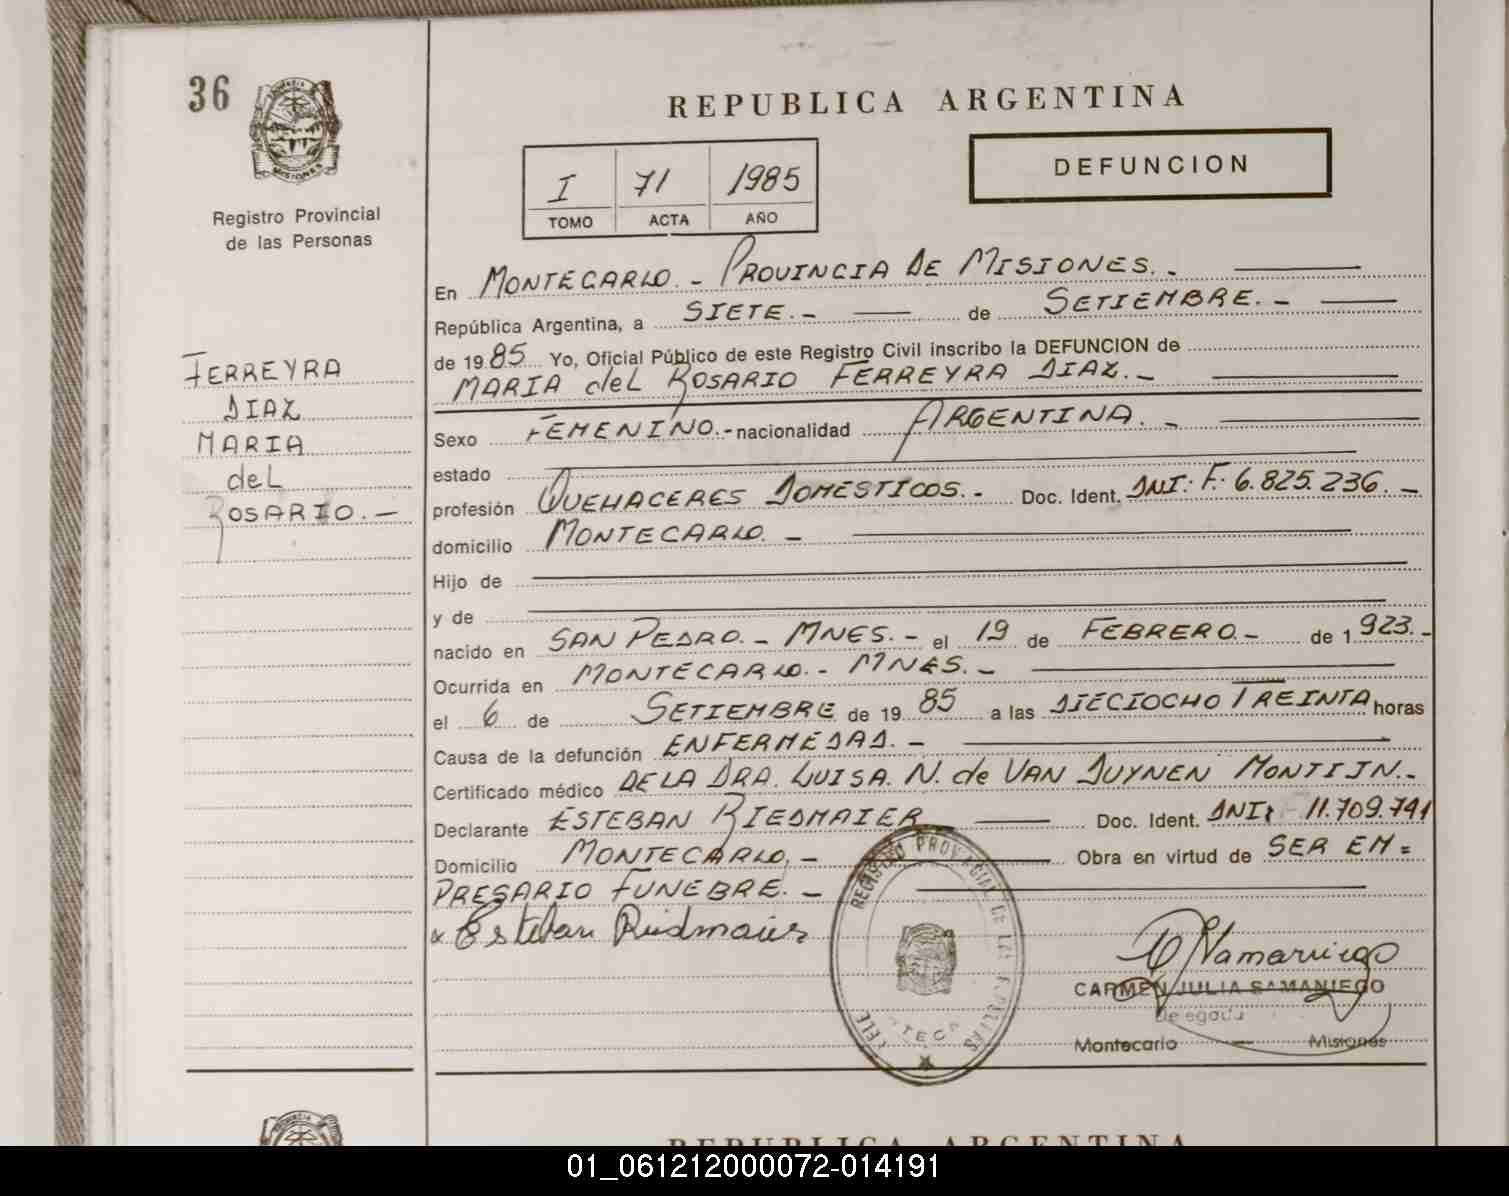 36
MISIONES
Registro Provincial
de las Personas
FERREYRA
DIAZ
MARIA
deL
ROSARIO.—
REPUBLICA ARGENTINA
I 71 1985
TOMO ACTA AÑO
DEFUNCION
En MONTECARLO.- PROVINCIA DE MISIONES.-
República Argentina, a SIETE.- de SETIEMBRE.-
de 1985 Yo, Oficial Público de este Registro Civil inscribo la DEFUNCION de
MARIA deL ROSARIO FERREYRA DIAZ.-
Sexo FEMENINO.- nacionalidad ARGENTINA.-
estado
profesión QUEHACERES DOMÉSTICOS.- Doc. Ident. DNI: F. 6.825.236.-
domicilio MONTECARLO.-
Hijo de
y de
nacido en SAN PEDRO.- MNES.- el 19 de FEBRERO.- de 1.923.-
Ocurrida en MONTECARLO.- MNES.-
el 6 de SETIEMBRE de 1985 a las DIECIOCHO TREINTA horas
Causa de la defunción ENFERMEDAD.-
Certificado médico DE LA DRA. LUISA. N. de VAN DUYNEN MONTIJN.-
Declarante ESTEBAN RIEDMAIER Doc. Ident. DNI: 11.709.741
Domicilio MONTECARLO,- Obra en virtud de SER EM=
PRESARIO FUNEBRE.-
x Esteban Riedmaier
REGISTRO PROVINCIAL DE LAS
CARMEN JULIA SAMANIEGO
Delegada
Montecarlo — Misiones
REPUBLICA ARGENTINA
01_061212000072-014191